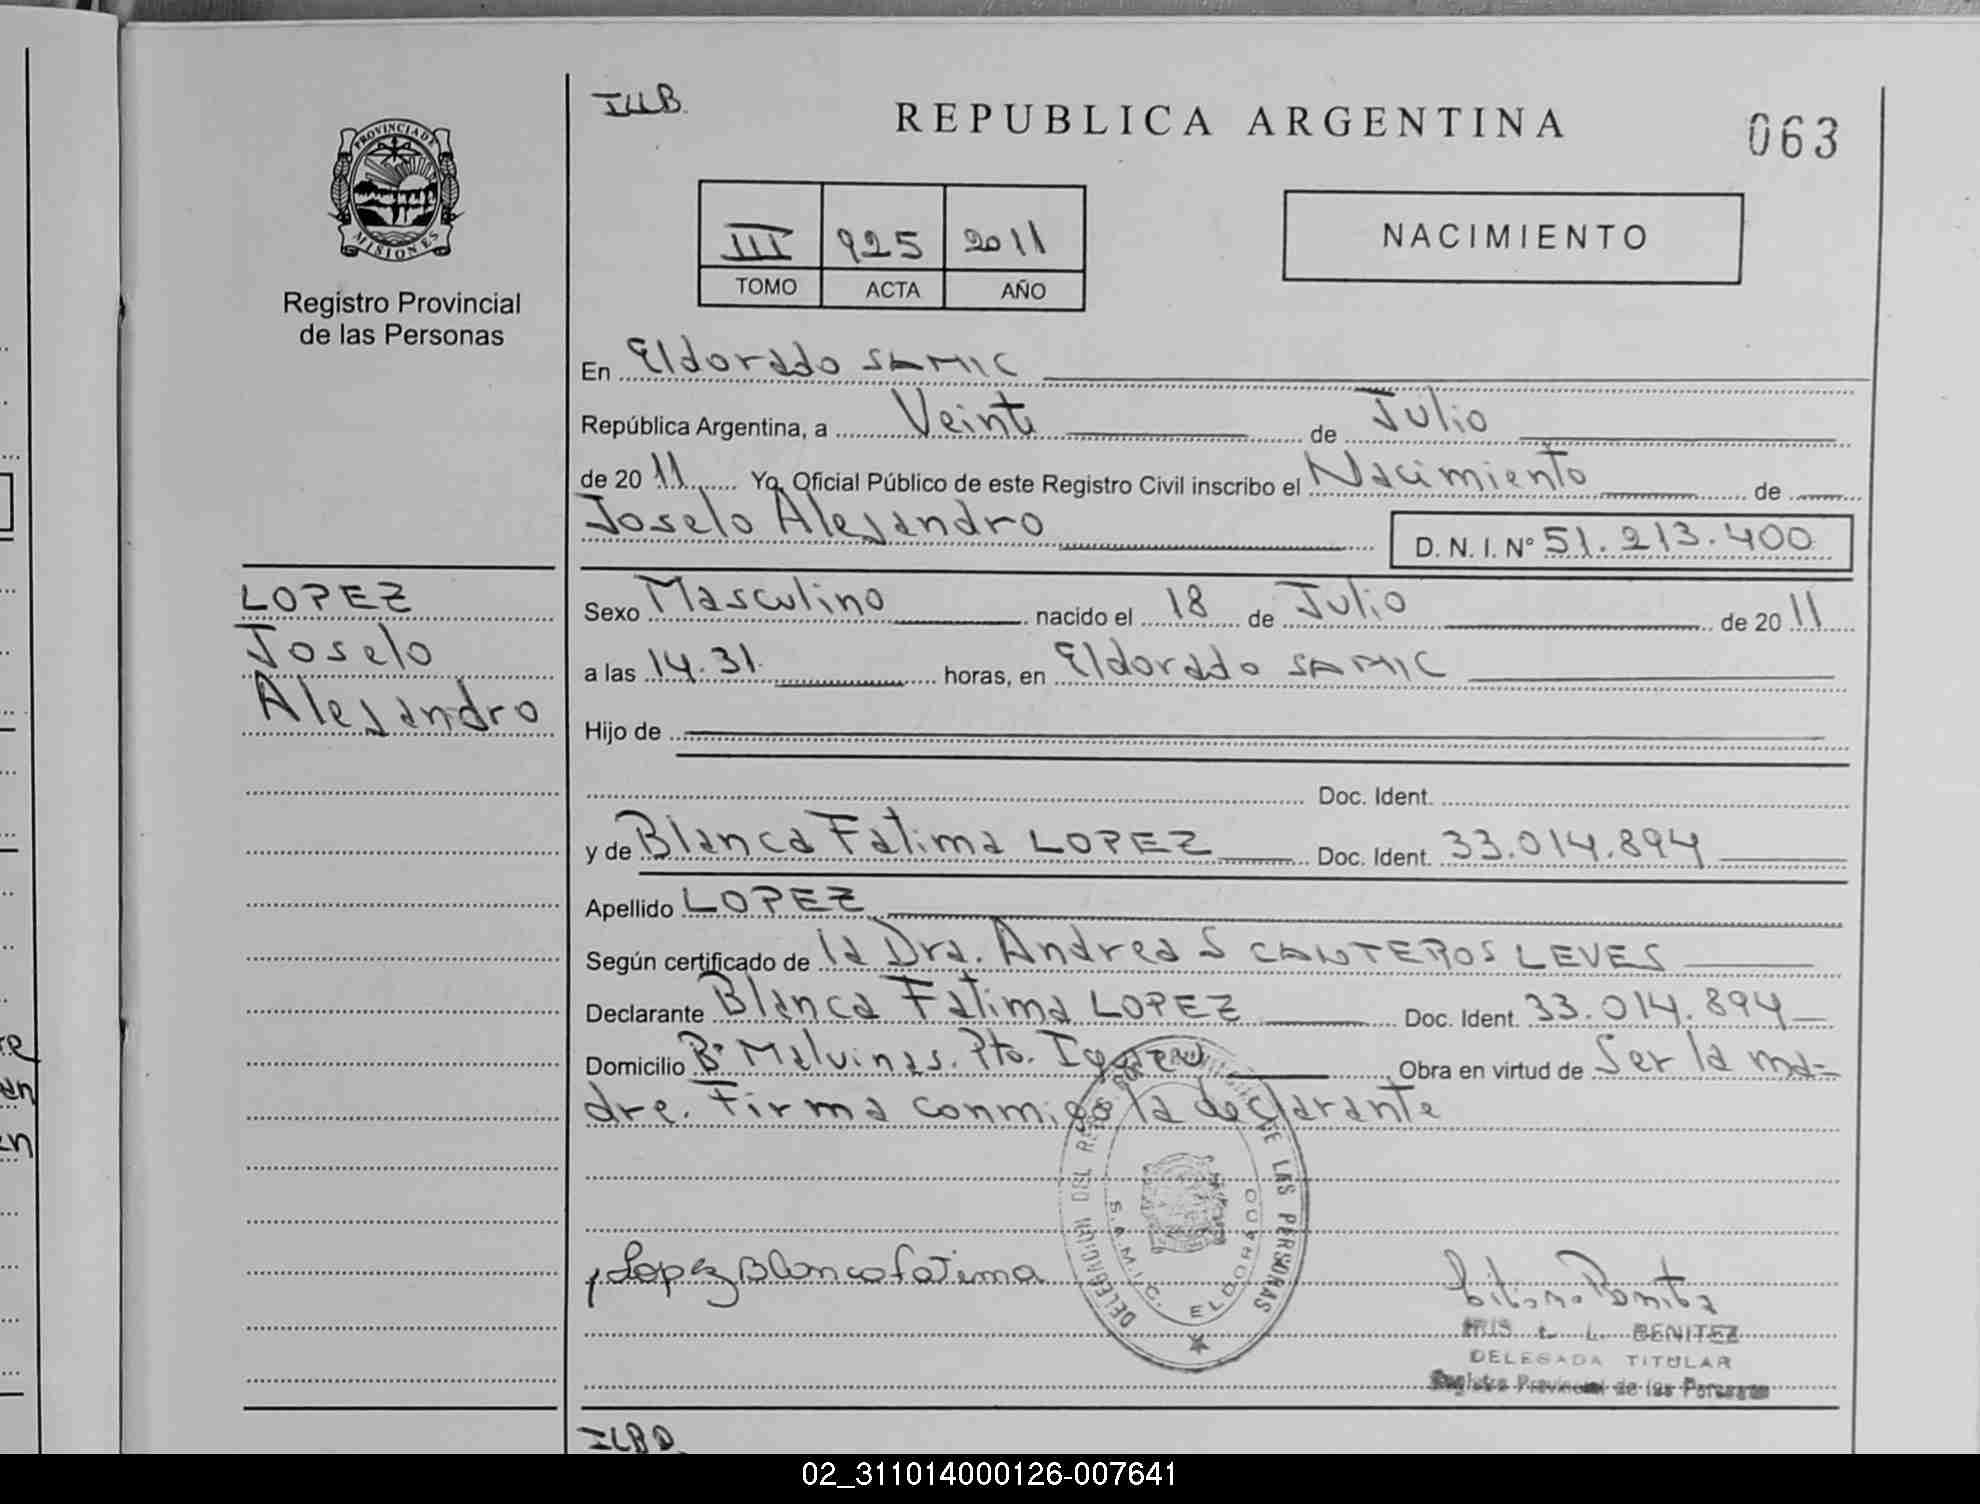 ILLB.
REPUBLICA ARGENTINA
063
PROVINCIA DE
MISIONES
Registro Provincial
de las Personas
III 925 2011
TOMO ACTA AÑO
NACIMIENTO
En Eldorado SAMIC
República Argentina, a Veinte de Julio
de 2011 Yo, Oficial Público de este Registro Civil inscribo el Nacimiento de
Joselo Alejandro
D. N. I. Nº 51.213.400
LOPEZ
Joselo
Alejandro
Sexo Masculino nacido el 18 de Julio de 2011
a las 14.31. horas, en Eldorado SAMIC
Hijo de
Doc. Ident.
y de Blanca Fatima LOPEZ Doc. Ident. 33.014.894
Apellido LOPEZ
Según certificado de la Dra. Andrea S CANTEROS LEVES
Declarante Blanca Fatima LOPEZ Doc. Ident. 33.014.894
Domicilio Bº Malvinas. Pto. Iguazú Obra en virtud de Ser la ma=
dre. Firma conmigo la declarante
DELEGACION DEL DE LAS PERSONAS
S.A.M.I.C. ELDORADO
Lopez Blanca fatima
IRIS L. BENITEZ
DELEGADA TITULAR
Registro Provincial de las Personas
02_311014000126-007641